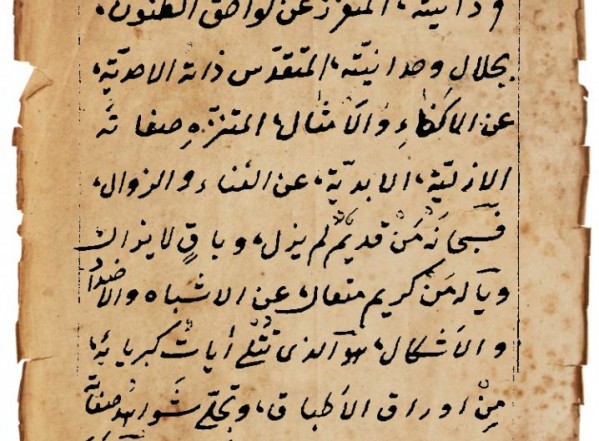 وحدانيته، المتعزز عن لواحق الظنون،
بجلال وحدانيّته، المتقدّس ذاته الاحديّة،
عن الاكفاءِ وَالاَمثال، المتنزّهِ صفاته
الازليّة، الابديّة، عن الفناء والزوال،
فسبحانهُ مَنْ قديمٌ لم يزل، وباقٍ لا يزال
وياله مَنْ كريم متعال، عن الاشباه والاضداد
والاَشكال، هوَ الذى تُتلٰى أيات كبريائه،
مِنْ اوراق الأطباق، وتجلّى شواهد صفاته